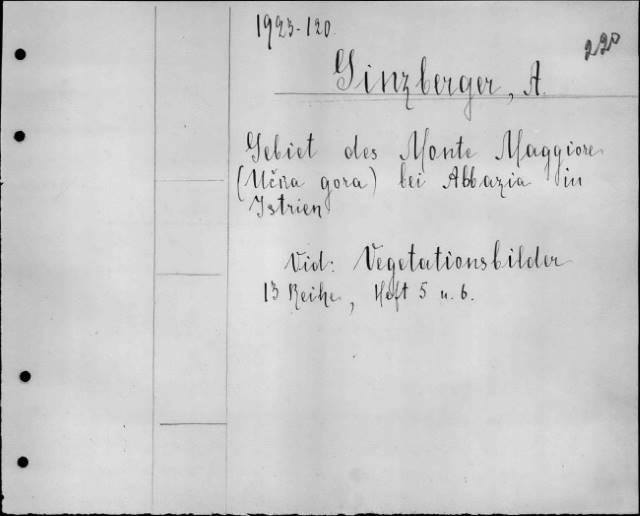 1923-120.
220
Ginzberger, A.
Gebiet des Monte Maggiore
(Učka gora) bei Abbazia in
Istrien
Vid: Vegetationsbilder
13 Reihe, Heft 5 u. 6.